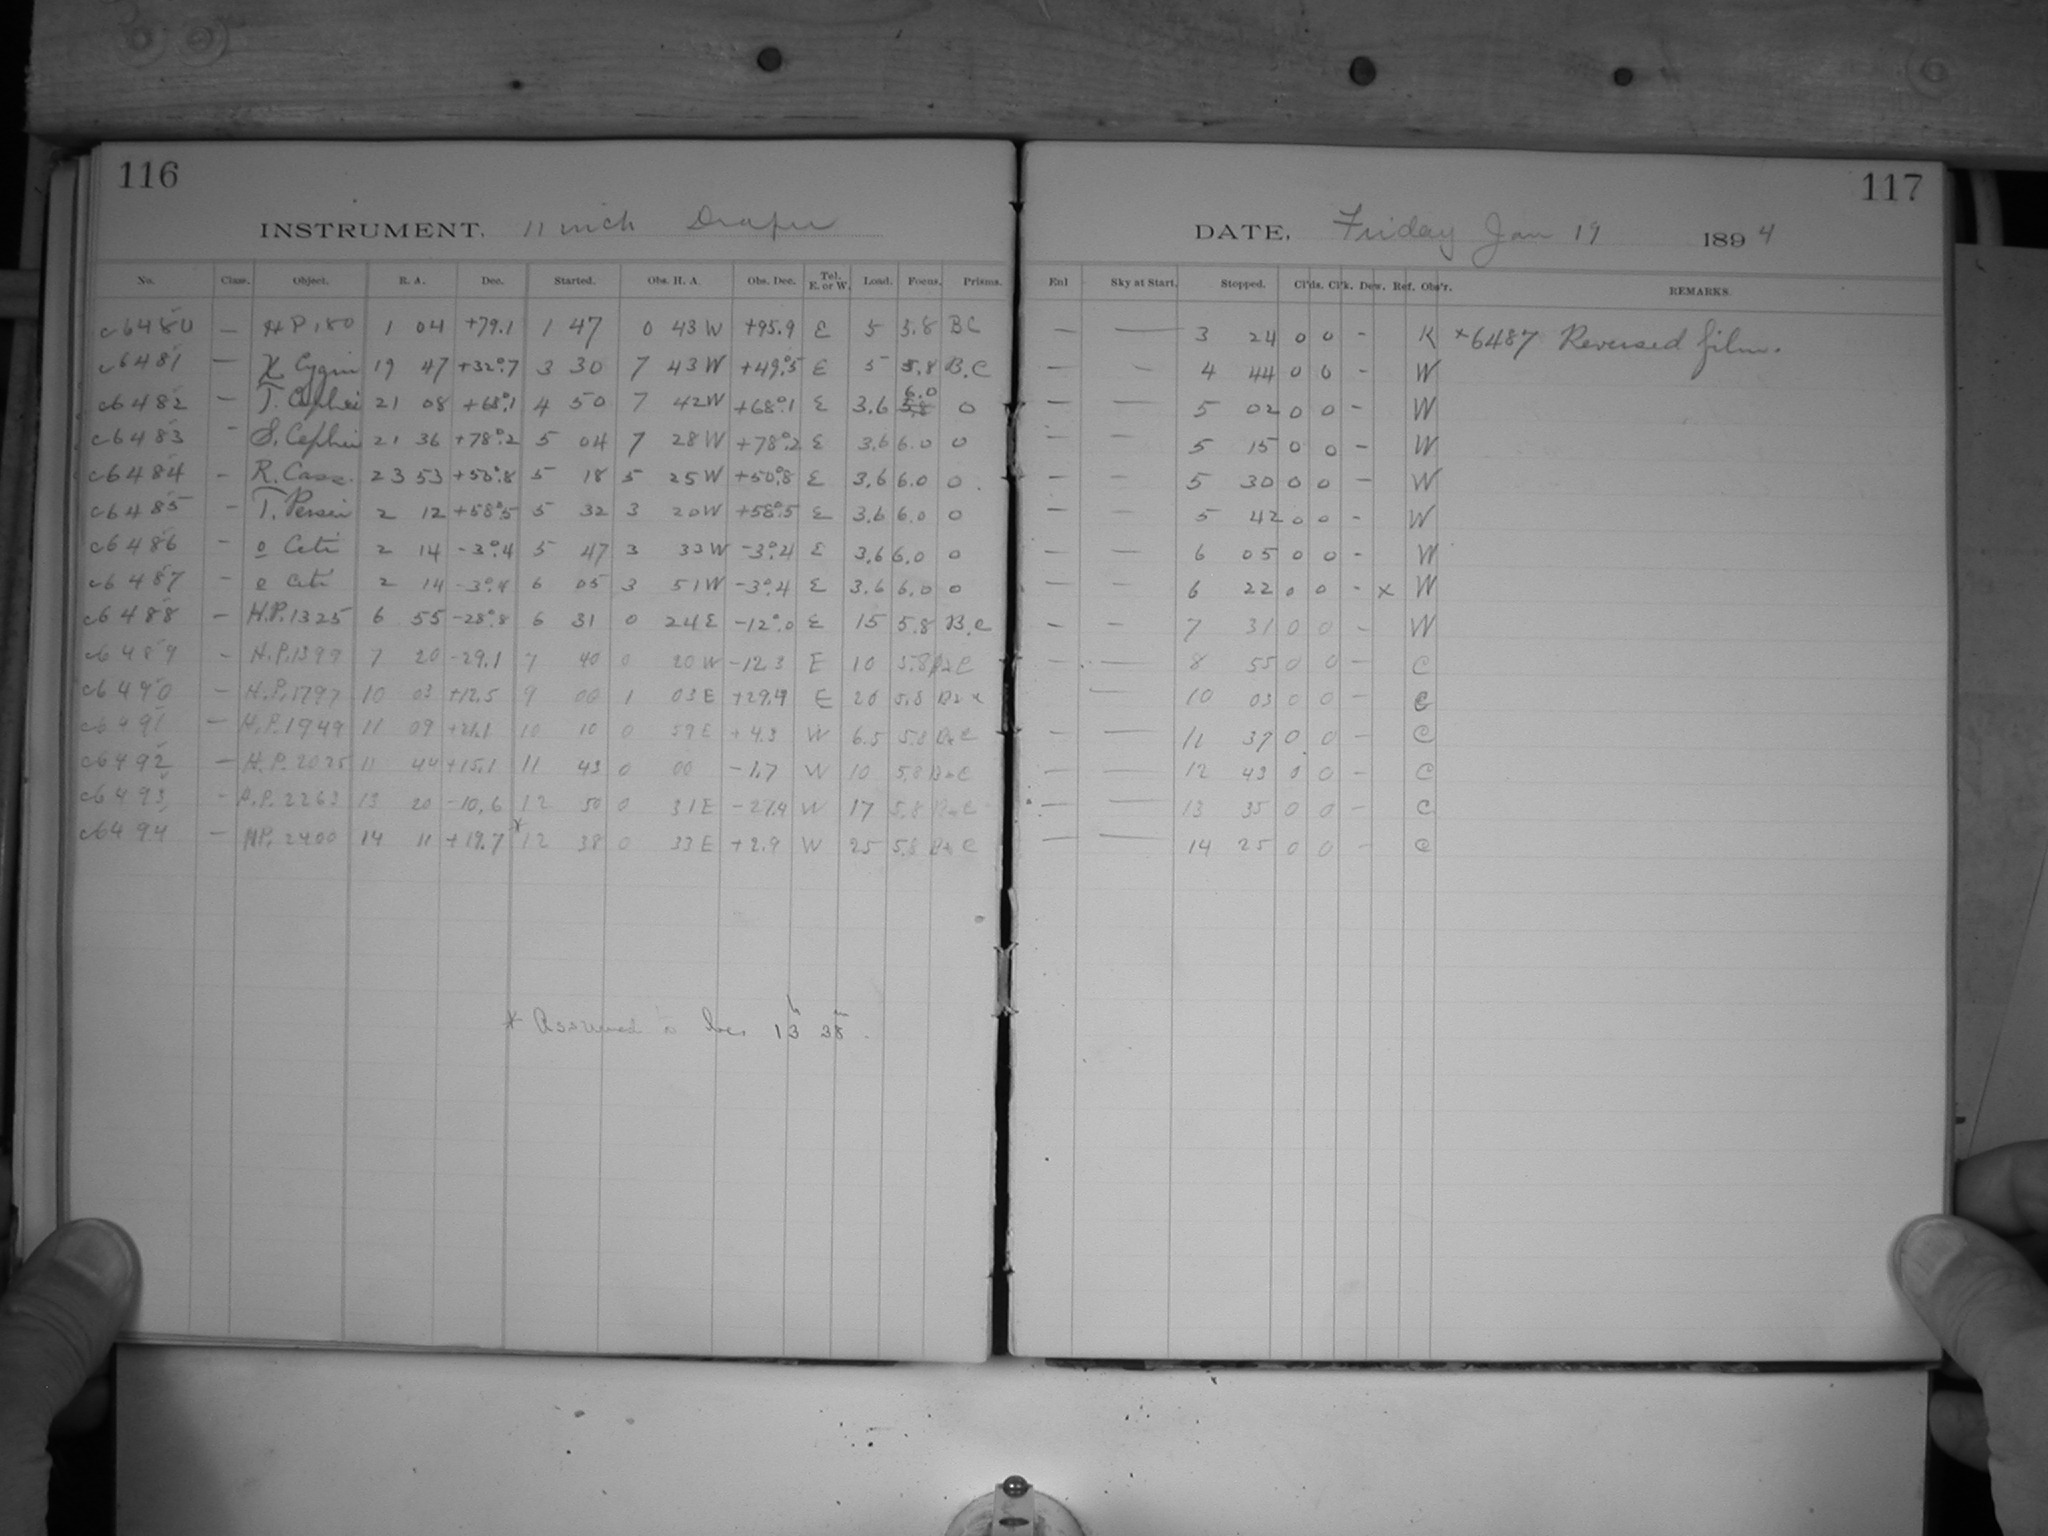 116
INSTRUMENT, 11 inch Draper
No. Class. Object. R. A. Dec. Started. Obs. H. A. Obs. Dec. Tel. E. or W. Load. Focus. Prisms.
c6480 — H P 180 1 04 +79.1 1 47 0 43 W +95.9 E 5 5.8 BC
c6481 — χ Cygni 19 47 +32°.7 3 30 7 43 W +49°.5 E 5 5.8 B.C
c6482 — T. Cephei 21 08 +68°.1 4 50 7 42 W +68°.1 E 3.6 5.8 6.0 0
c6483 — S. Cephei 21 36 +78°.2 5 04 7 28 W +78°.2 E 3.6 6.0 0
c6484 — R. Cass. 23 53 +50°.8 5 18 5 25 W +50°.8 E 3.6 6.0 0
c6485 — T. Persei 2 12 +58°.5 5 32 3 20 W +58°.5 E 3.6 6.0 0
c6486 — o Ceti 2 14 -3°.4 5 47 3 33 W -3°.4 E 3.6 6.0 0
c6487 — o Ceti 2 14 -3°.4 6 05 3 51 W -3°.4 E 3.6 6.0 0
c6488 — H.P. 1325 6 55 -28°.8 6 31 0 24 E -12°.0 E 15 5.8 B.C
c6489 — H.P. 1399 7 20 -29.1 7 40 0 20 W -12.3 E 10 5.8 B&C
c6490 — H.P. 1797 10 03 +12.5 9 00 1 03 E +29.4 E 20 5.8
c6491 — H.P. 1949 11 09 +21.1 10 10 0 59 E +4.3 W 6.5 5.8 B&C
c6492 — H.P. 2025 11 44 +15.1 11 43 0 00 -1.7 W 10 5.8 B&C
c6493 — H.P. 2263 13 20 -10.6 12 50 0 31 E -27.4 W 17 5.8 B&C
c6494 — HP. 2400 14 11 +19.7 *12 38 0 33 E +2.9 W 25 5.8 B&C
* Assumed to be 13h 38m.
117
DATE, Friday Jan 19 1894
Enl Sky at Start. Stopped. Cl'ds. Cl'k. Dew. Ref. Obs'r. REMARKS.
— — 3 24 0 0 - K ×6487 Reversed film.
— — 4 44 0 0 - W
— — 5 02 0 0 - W
— — 5 15 0 0 - W
— — 5 30 0 0 - W
— — 5 42 0 0 - W
— — 6 05 0 0 - W
— — 6 22 0 0 - × W
— — 7 31 0 0 - W
— — 8 55 0 0 - C
— 10 03 0 0 - C
— — 11 37 0 0 - C
— — 12 43 0 0 - C
— — 13 35 0 0 - C
— — 14 25 0 0 - C